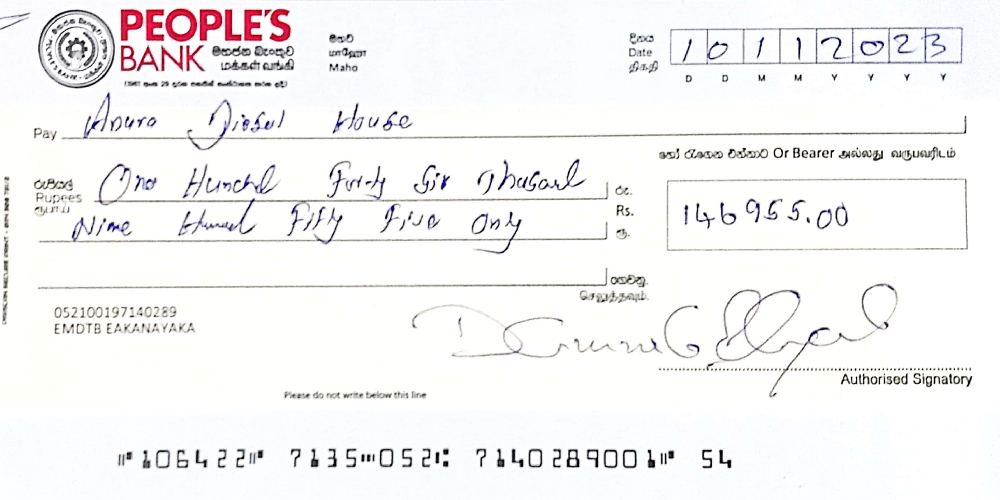 PEOPLE'S
BANK මහජන බැංකුව
மக்கள் வங்கி
මහව
மாஹோ
Maho
දිනය
Date
திகதி
10 11 2023
D D M M Y Y Y Y
Pay Anura Diesel House
හෝ රැගෙන එන්නාට Or Bearer அல்லது வருபவரிடம்
රුපියල්
Rupees
ரூபாய்
One Hundred Fourty Six Thousand
Nine Hundred Fifty Five Only
රු.
Rs.
ரூ.
146955.00
ගෙවනු.
செலுத்தவும்.
052100197140289
EMDTB EAKANAYAKA
Authorised Signatory
Please do not write below this line
⑈106422⑈ 7135⑉052⑆ 7140289001⑈ 54